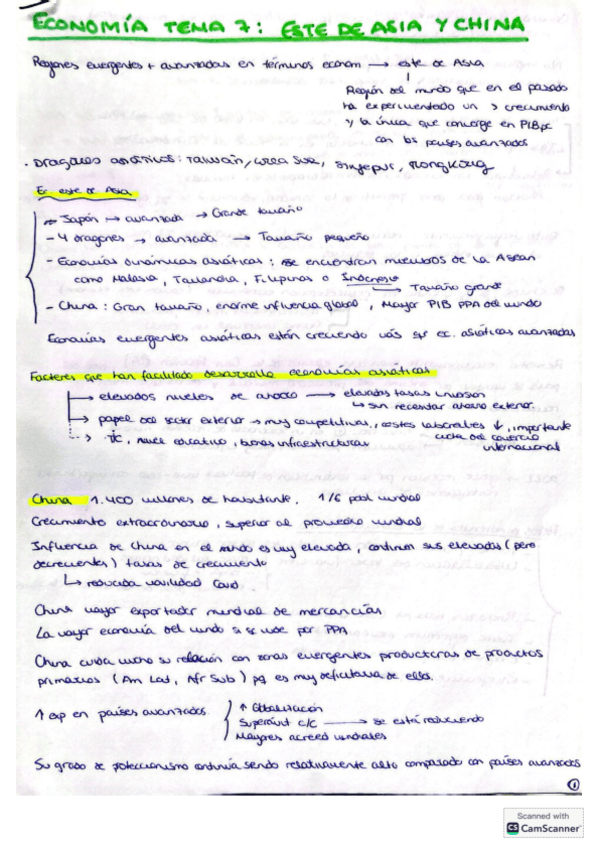 ECONOMÍA TEMA 7: ESTE DE ASIA Y CHINA
Regiones emergentes + avanzadas en términos econom → este de Asia
Región del mundo que en el pasado
ha experimentado un > crecimiento
y la única que converge en PIBpc
con los países avanzados
· Dragones asiáticos: Taiwain, Corea Sur, Singapur, Hong Kong
Ec este de Asia
Japón → avanzada → Grande tamaño
- 4 dragones → avanzada → Tamaño pequeño
- Economías dinámicas asiáticas: se encuentran miembros de la Asean
como Malasia, Tailandia, Filipinas o Indonesia
→ Tamaño grande
- China: Gran tamaño, enorme influencia global, Mayor PIB PPA del mundo
Economías emergentes asiáticas están creciendo más que ec. asiáticas avanzadas
Factores que han facilitado desarrollo economías asiáticas
→ elevados niveles de ahorro → elevadas tasas inversión
↳ sin necesitar ahorro exterior
→ papel del sector exterior → muy competitivas, costes laborales ↓, importante
cuota del comercio
internacional
→ TIC, nivel educativo, buenas infraestructuras
China 1.400 millones de habitante, 1/6 pobl mundial
Crecimiento extraordinario, superior al promedio mundial
Influencia de China en el mundo es muy elevada, continúan sus elevadas (pero
decrecientes) tasas de crecimiento
↳ reducida Covid
China mayor exportador mundial de mercancías
La mayor economía del mundo si se mide por PPA
China cuida mucho su relación con zonas emergentes productoras de productos
primarios (Am Lat, Afr Sub) pq es muy deficitaria de ellos.
↑ exp en países avanzados
↑ Globalización
Superávit c/c → se está reduciendo
Mayores acreed mundiales
Su grado de proteccionismo continúa siendo relativamente alto comparado con países avanzados
1
Scanned with
CS CamScanner